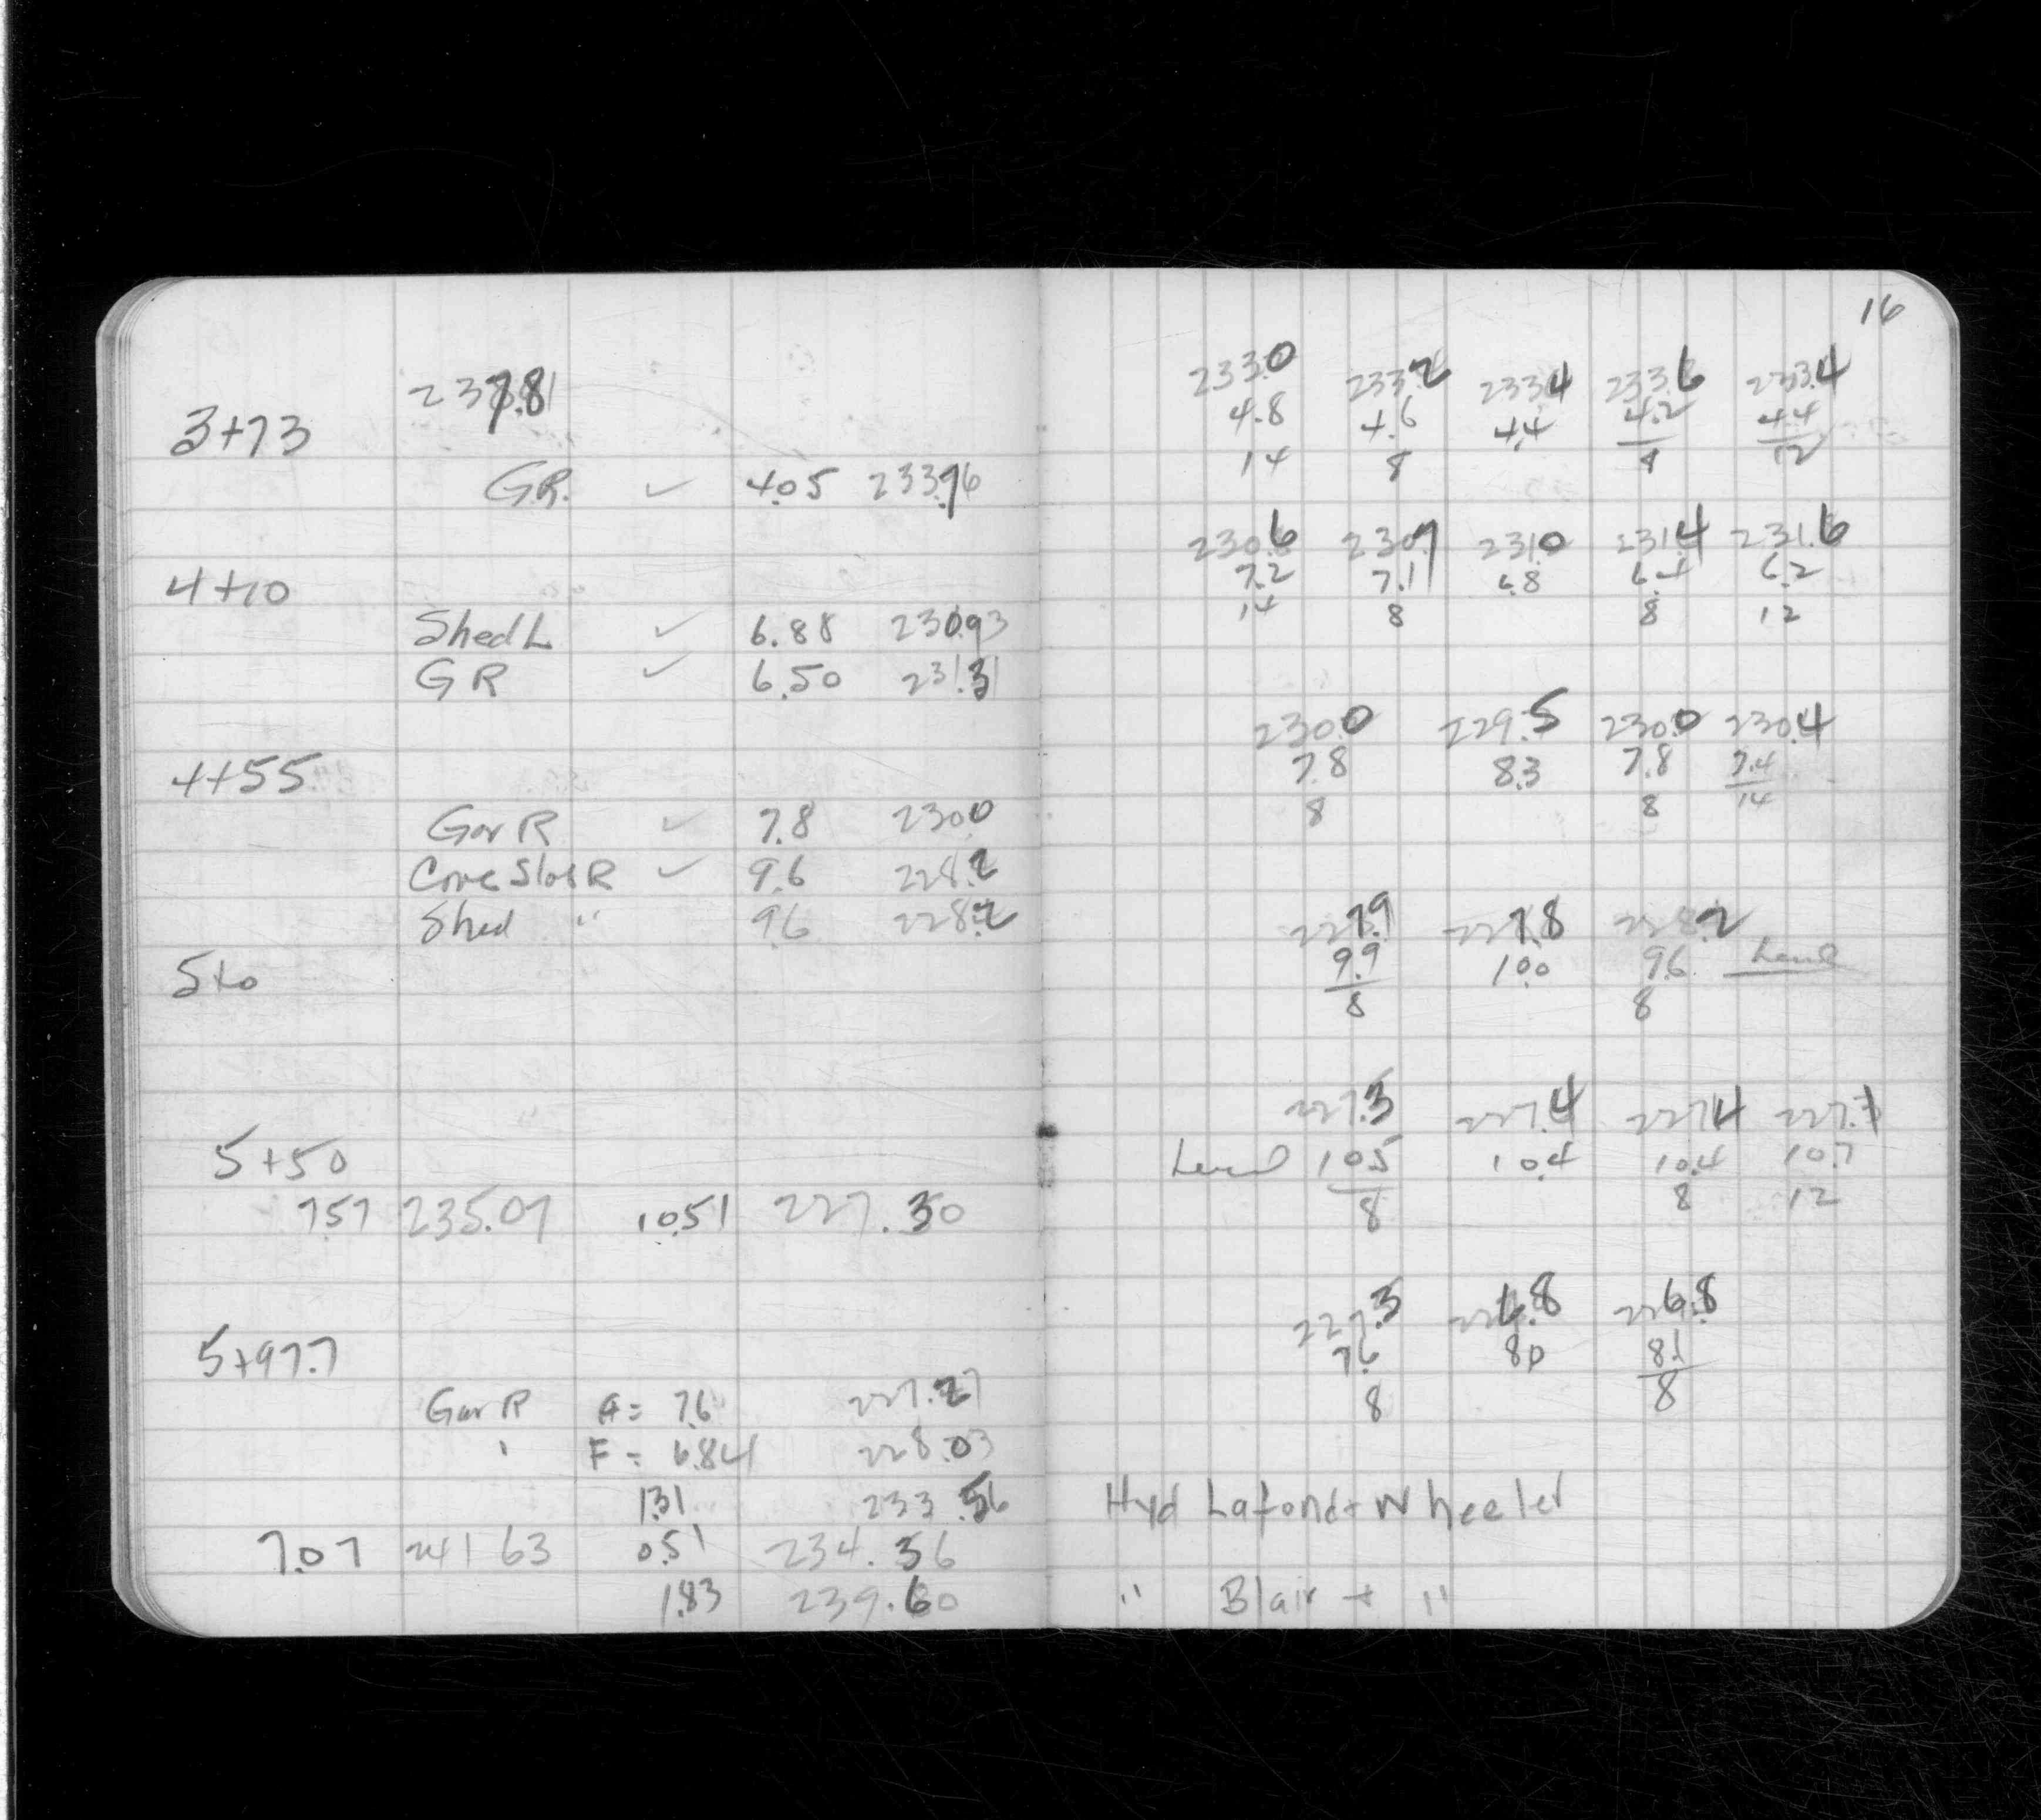 237.81
3+73
G.R. ✓ 4.05 233.76
4+10
Shed L ✓ 6.88 230.93
G R ✓ 6.50 231.31
4+55
Gar R ✓ 7.8 230.0
Conc Slab R ✓ 9.6 228.2
Shed " 9.6 228.2
5+0
5+50
7.57 235.07 10.51 227.30
5+97.7
Gar R A = 7.6 227.27
" F = 6.84 228.03
1.31 233.56
7.07 241.63 0.51 234.56
1.83 239.60
16
233.0 233.2 233.4 233.6 233.4
4.8 4.6 4.4 4.2 4.4
14 8 8 12
230.6 230.7 231.0 231.4 231.6
7.2 7.1 6.8 6.4 6.2
14 8 8 12
230.0 229.5 230.0 230.4
7.8 8.3 7.8 7.4
8 8 14
227.9 227.8 228.2
9.9 10.0 9.6 Level
8 8
227.3 227.4 227.4 227.1
Level 10.5 10.4 10.4 10.7
8 8 12
227.3 226.8 226.8
7.6 8.0 8.1
8 8
Hyd Lafond + Wheeler
" Blair + "